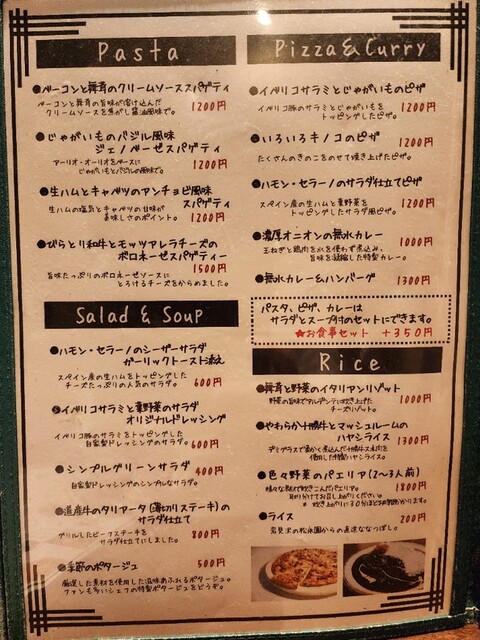 Pasta
●ベーコンと舞茸のクリームソーススパゲティ
ベーコンと舞茸の旨味が溶け込んだ
クリームソースを焦がし醤油風味で。
1200円
●じゃがいものバジル風味
ジェノベーゼスパゲティ
アーリオ・オーリオをベースに
じゃがいもとバジルの風味で。
1200円
●生ハムとキャベツのアンチョビ風味
スパゲティ
生ハムの塩気とキャベツの甘味が
美味しさのポイント。
1200円
●びらとり和牛とモッツァレラチーズの
ボロネーゼスパゲティー
1500円
旨味たっぷりのボロネーゼソースに
とろけるチーズをからめました。
Salad & Soup
●ハモン・セラーノのシーザーサラダ
ガーリックトースト添え
スペイン産の生ハムをトッピングした
チーズたっぷりの人気のサラダ。
600円
●イベリコサラミと葉野菜のサラダ
オリジナルドレッシング
イベリコ豚のサラミをトッピングした
自家製ドレッシングのサラダ。
600円
●シンプルグリーンサラダ
400円
自家製ドレッシングのシンプルなサラダ。
●道産牛のタリアータ(薄切りステーキ)の
サラダ仕立て
800円
グリルしたビーフステーキを
サラダ仕立てにしました。
●季節のポタージュ
500円
厳選した素材を使用した滋味あふれるポタージュ。
ファンも多いシェフの特製ポタージュをどうぞ。
Pizza&Curry
●イベリコサラミとじゃがいものピザ
イベリコ豚のサラミとじゃがいもを
トッピングしたピザ。
1200円
●いろいろキノコのピザ
1200円
たくさんのきのこをのせて焼き上げたピザ。
●ハモン・セラーノのサラダ仕立てピザ
スペイン産の生ハムと葉野菜を
トッピングしたサラダ風ピザ。
1200円
●濃厚オニオンの無水カレー
1000円
玉ねぎと鶏肉を水を使わず煮込み、
旨味を凝縮した特製カレー。
●無水カレー&ハンバーグ
1300円
パスタ、ピザ、カレーは
サラダとスープ付のセットにできます。
★お食事セット +350円
Rice
●舞茸と野菜のイタリアンリゾット
1000円
野菜の旨味でアルデンテに炊き上げた
チーズリゾット。
●やわらか十勝牛とマッシュルームの
ハヤシライス
1300円
デミグラスで柔かく煮込んだ十勝牛スネ肉を
使用した特製ハヤシライス。
●色々野菜のパエリア(2〜3人前)
1800円
様々な具材で炊きこんだパエリア。
取り分けてお召し上がりください。
※炊き上がりに30分ほどお時間かかります。
●ライス
200円
岩見沢の松永園からの直送ななつぼし。